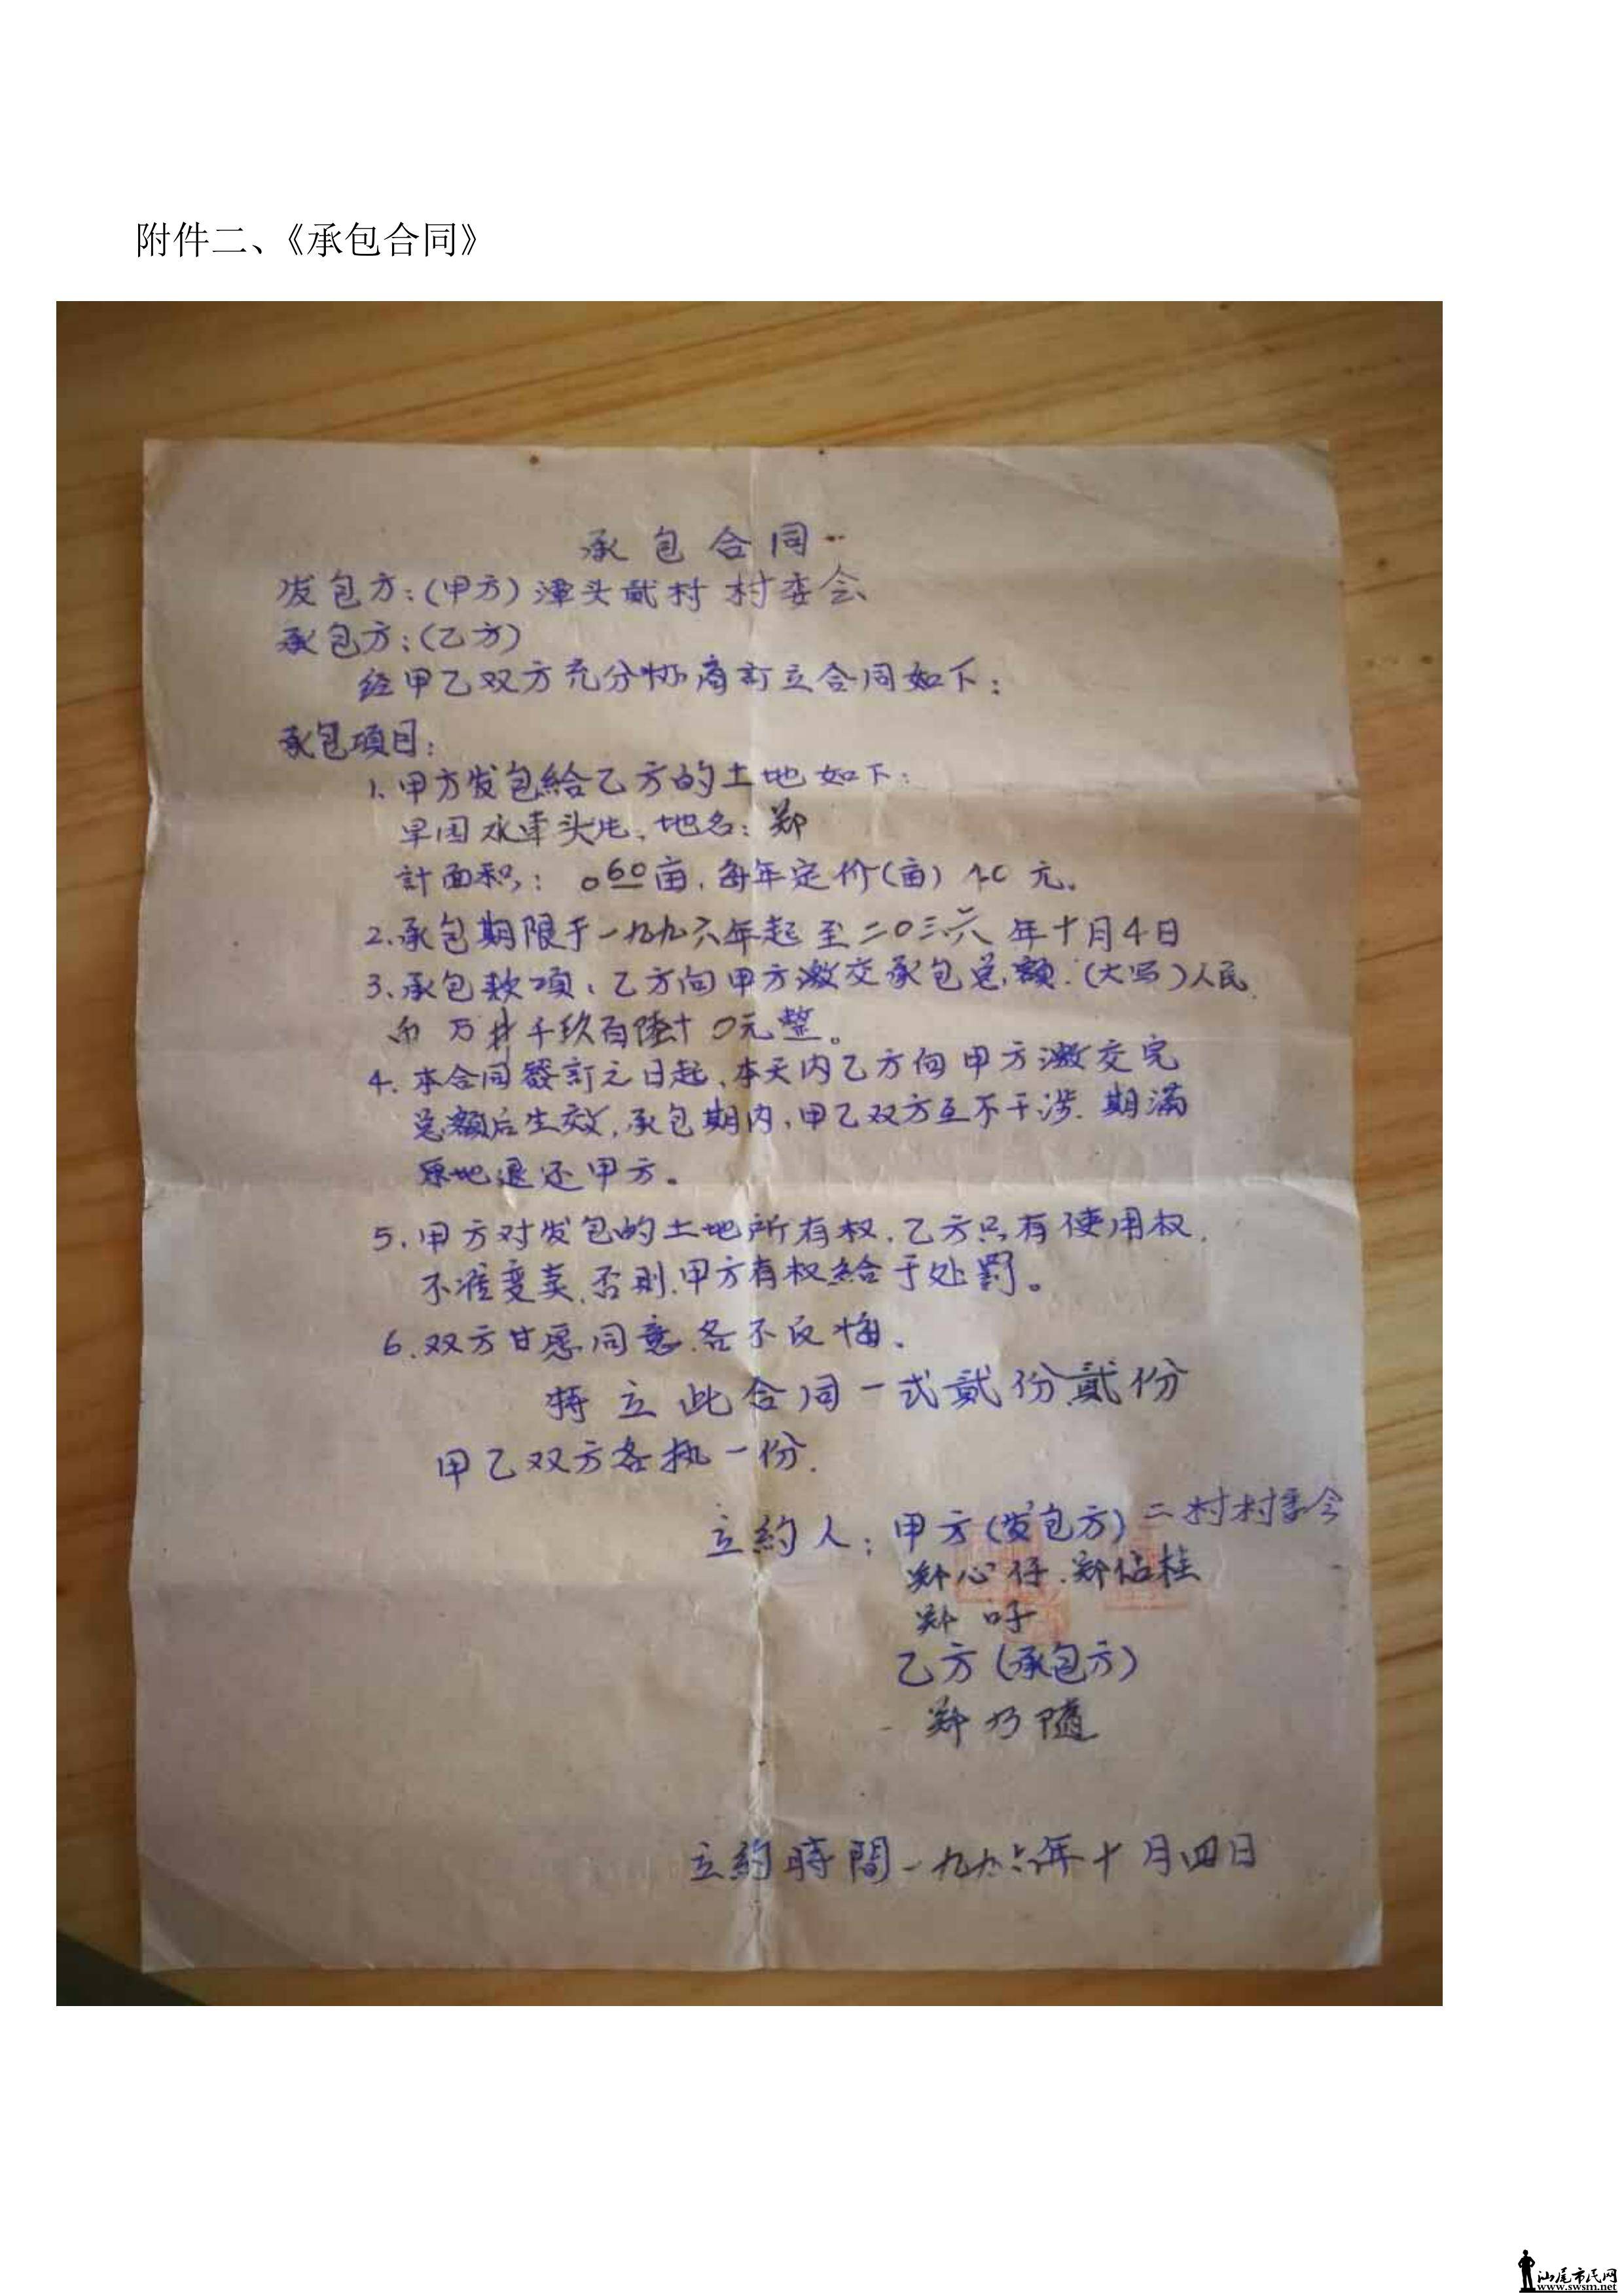 附件二、《承包合同》
承包合同
发包方:(甲方)潭头貮村 村委会
承包方:(乙方)
经甲乙双方充分协商訂立合同如下:
承包項目:
1.甲方发包給乙方的土地如下:
旱园水車头片、地名:郑
計面积: 060亩,每年定价(亩) 元。
2.承包期限于一九九六年起至二〇三六年十月4日
3.承包款項、乙方向甲方激交承包总额:(大写)人民
币 万 千玖百陸十0元整。
4.本合同簽訂之日起、本天内乙方向甲方激交完
总额后生效,承包期内,甲乙双方互不干涉.期満
原地退还甲方。
5.甲方对发包的土地所有权,乙方只有使用权,
不准变卖,否則,甲方有权給于处罰。
6.双方甘愿同意.各不反悔.
特立此合同一式貮份貮份
甲乙双方各执一份.
立約人:甲方(发包方)二村村委会
郑心仔.郑 桂
郑
乙方(承包方)
郑乃隨
立約時間一九九六年十月四日
汕尾市民网
www.swsm.net